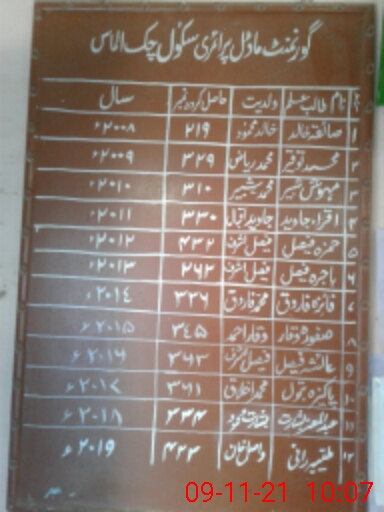 گورنمنٹ ماڈل پرائمری سکول چک الماس
نام طالب علم ولدیت حاصل کردہ نمبر سال
۱ صائقہ خالد خالد محمود ۲۱۹ ۲۰۰۸ء
۲ محمد توقیر محمد ریاض ۳۲۹ ۲۰۰۹ء
۳ مہوش شبیر محمد شبیر ۳۱۰ ۲۰۱۰ء
۴ اقراء جاوید جاوید اقبال ۳۳۰ ۲۰۱۱ء
۵ حمزہ فیصل فیصل اشرف ۴۳۲ ۲۰۱۲ء
۶ ہاجرہ فیصل فیصل اشرف ۲۶۲ ۲۰۱۳ء
۷ فائزہ فاروق محمد فاروق ۳۳۶ ۲۰۱۴ء
۸ صفورہ وقار وقار احمد ۳۴۵ ۲۰۱۵ء
۹ عائشہ فیصل فیصل اشرف ۳۶۳ ۲۰۱۶ء
۱۰ پاکیزہ بتول محمد اخلاق ۳۶۱ ۲۰۱۷ء
۱۱ ۳۳۴ ۲۰۱۸ء
۱۲ رانی واصل خان ۴۲۳ ۲۰۱۹ء
09-11-21 10:07